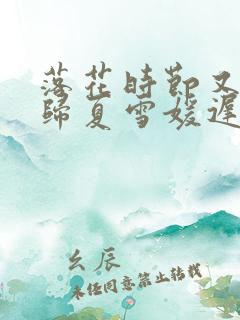 落花時節又
歸夏雪媛遲
幺辰
未经同意禁止转载